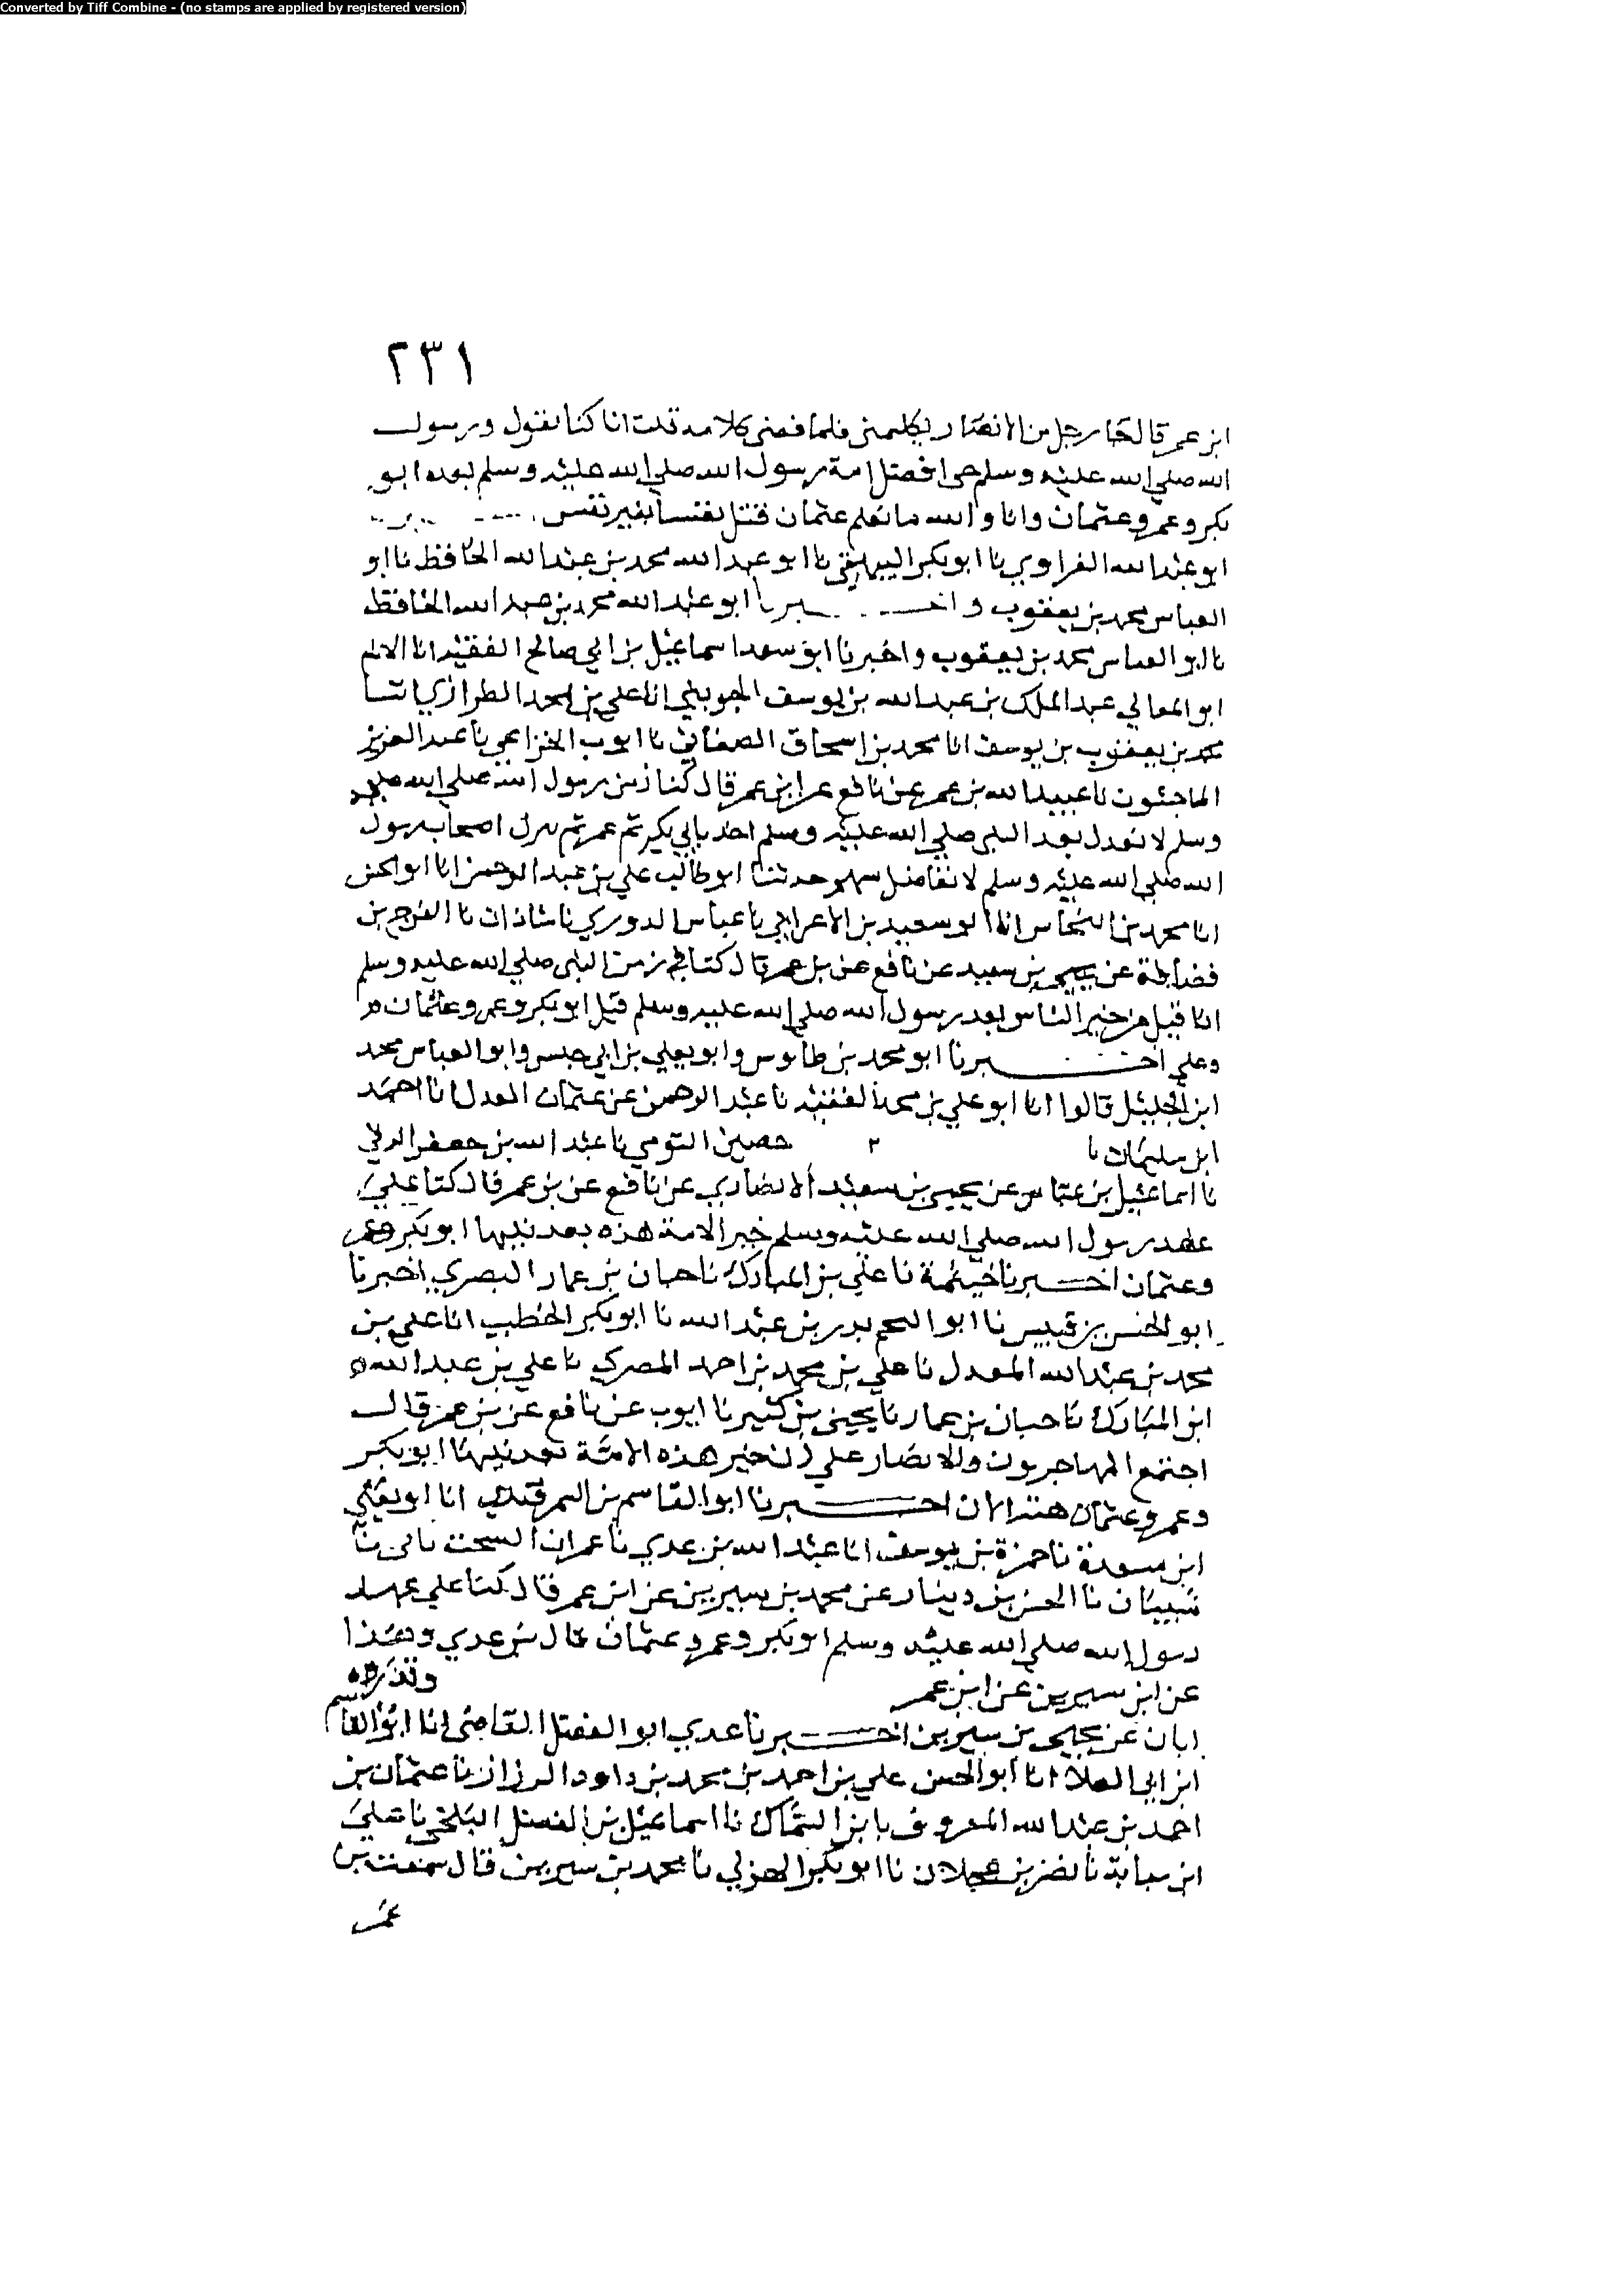 Converted by Tiff Combine - (no stamps are applied by registered version)
٢٣١
ابن عمر قال جا رجل من الانصار يكلمني فلما قضى كلامه قلت انا كنا نقول ورسول
الله صلي الله عليه وسلم حي افضل امة رسول الله صلي الله عليه وسلم بعده ابو
بكر وعمر وعثمان وانا والله ما نعلم عثمان قتل نفسا بغير نفس
ابو عبد الله الفراوي نا ابو بكر البيهقي نا ابو عبد الله محمد بن عبد الله الحافظ نا ابو
العباس محمد بن يعقوب واخبرنا ابو عبد الله محمد بن عبد الله الحافظ
نا ابو العباس محمد بن يعقوب واخبرنا ابو سعد اسماعيل بن ابي صالح الفقيه انا الامام
ابو المعالي عبد الملك بن عبد الله بن يوسف الجويني انا علي بن محمد الطرازي انبا
محمد بن يعقوب بن يوسف انا محمد بن اسحاق الصغاني نا ايوب الخزاعي نا عبد العزيز
الماجشون نا عبيد الله بن عمر عن نافع عن ابن عمر قال كنا زمن رسول الله صلي الله عليه
وسلم لا نعدل بعد النبي صلي الله عليه وسلم احد بابي بكر ثم عمر ثم نترك اصحاب رسول
الله صلي الله عليه وسلم لا نفاضل بينهم حدثنا ابو طالب علي بن عبد الرحمن انا ابو الحسن
انا محمد بن النحاس انا ابو سعيد بن الاعرابي نا عباس الدوري نا شاذان نا الفرج بن
فضالة عن يحيى بن سعيد عن نافع عن بن عمر قال كنا في زمن النبي صلي الله عليه وسلم
اذا قيل من خير الناس بعد رسول الله صلي الله عليه وسلم قيل ابو بكر وعمر وعثمان
وعلي اخبرنا ابو محمد بن طاوس وابو يعلي بن ابي حبيش وابو العباس محمد
ابن الخليل قالوا انا ابو علي بن محمد الفقيه نا عبد الرحمن عن عثمان المعدل انا احمد
ابن سليمان نا ٢ حصين التومي نا عبد الله بن جعفر الرقي
نا اسماعيل بن عياش عن يحيى بن سعيد الانصاري عن نافع عن بن عمر قال كنا علي
عهد رسول الله صلي الله عليه وسلم خير الامة هذه بعد نبيها ابو بكر وعمر
وعثمان اخبرنا خيثمة نا علي بن المبارك نا حبان بن عمار البصري اخبرنا
ابو الحسن بن قبيس نا ابو النجم بدر بن عبد الله نا ابو بكر الخطيب انا علي بن
محمد بن عبد الله المعدل نا علي بن محمد بن احمد المصري نا علي بن عبد الله
ابن المبارك نا حبان بن عمار نا يحيى بن كثير نا ايوب عن نافع عن بن عمر قال
اجتمع المهاجرون والانصار علي ان خير هذه الامة بعد نبيها ابو بكر
وعمر وعثمان الان اخبرنا ابو القاسم بن السمرقندي انا ابو
ابن مسعدة نا حمزة بن يوسف انا عبد الله بن عدي نا عمران السختياني نا
شيبان نا الحسن بن دينار عن محمد بن سيرين عن ابن عمر قال كنا علي عهد
رسول الله صلي الله عليه وسلم ابو بكر وعمر وعثمان قال بن عدي وهذا
عن ابن سيرين عن ابن عمر
ابان عن يحيى بن سيرين اخبرنا عدي ابو الفضل القاضي انا ابو القاسم
ابن ابي العلاء انا ابو الحسن علي بن احمد بن محمد بن داود الرزاز نا عثمان بن
احمد بن عبد الله المعروف بابن السماك نا اسماعيل بن الفضل البلخي نا علي
ابن سيابة نا نضر بن عجلان نا ابو بكر الهذلي نا محمد بن سيرين قال سمعت بن
عمر